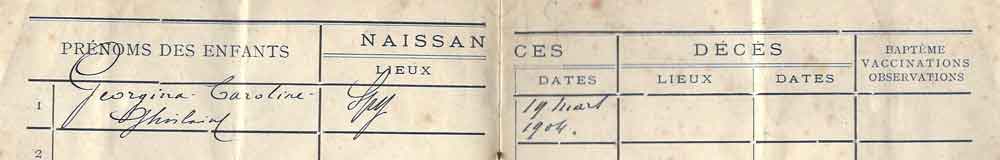 PRÉNOMS DES ENFANTS
NAISSAN
CES
DÉCÉS
BAPTÊME
VACCINATIONS
OBSERVATIONS
LIEUX
DATES
LIEUX
DATES
1
Georgina Caroline
Ghislaine
Spy
19 mars
1904.
2